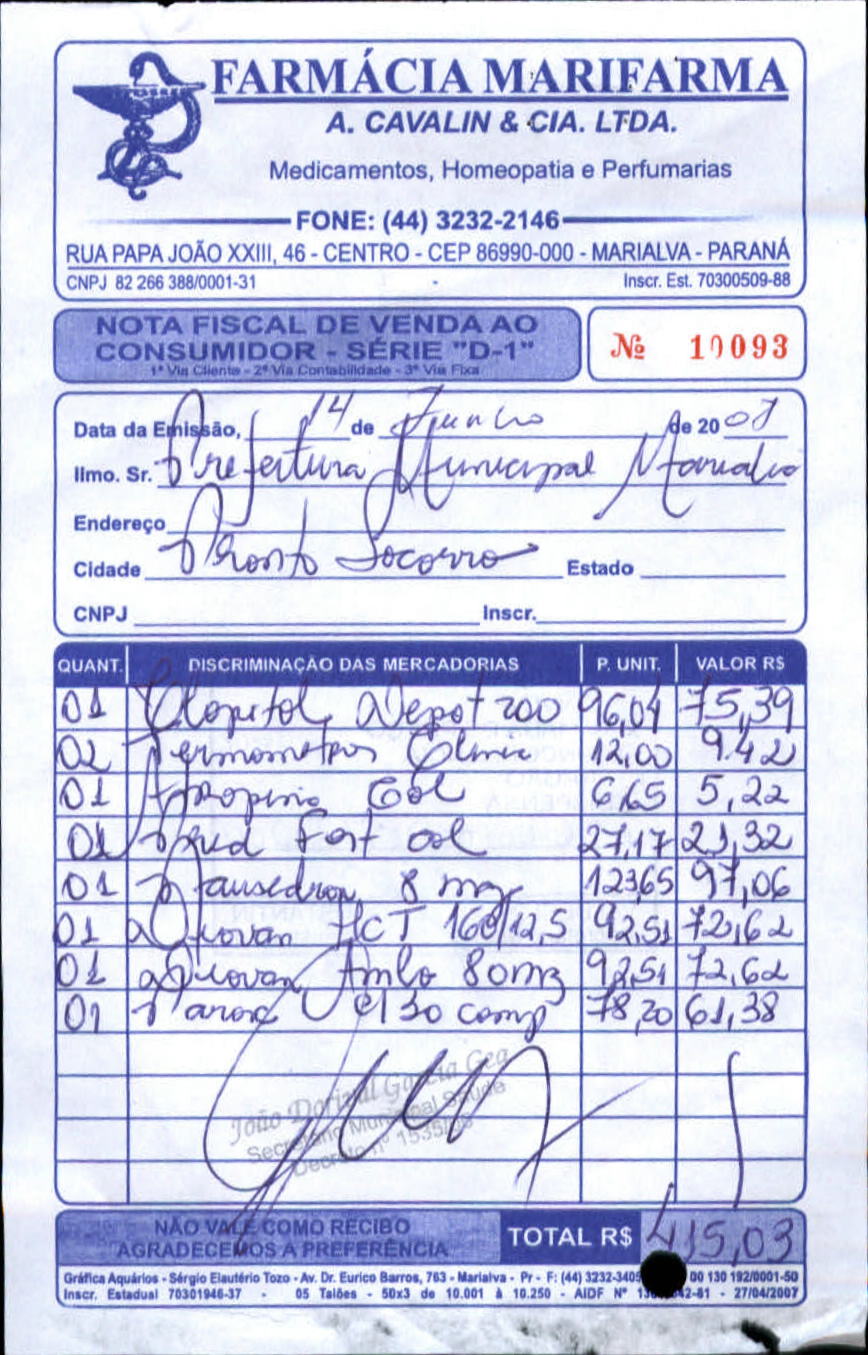 FARMÁCIA MARIFARMA
A. CAVALIN & CIA. LTDA.
Medicamentos, Homeopatia e Perfumarias
FONE: (44) 3232-2146
RUA PAPA JOÃO XXIII, 46 - CENTRO - CEP 86990-000 - MARIALVA - PARANÁ
CNPJ 82 266 388/0001-31 Inscr. Est. 70300509-88
NOTA FISCAL DE VENDA AO
CONSUMIDOR - SÉRIE "D-1"
1ª Via Cliente - 2ª Via Contabilidade - 3ª Via Fixa
Nº 10093
Data da Emissão, 14 de Junho de 2007
Ilmo. Sr. Prefeitura Municipal Marialva
Endereço
Cidade Pronto Socorro Estado
CNPJ Inscr.
QUANT. DISCRIMINAÇÃO DAS MERCADORIAS P. UNIT. VALOR R$
01 Depot 200 96,04 75,39
02 Termometros 12,00 9.42
01 Atropina Col 6,65 5,22
01 Pred Fort col 27,17 21,32
01 Nausedron 8 mg 12365 97,06
01 Diovan HCT 160/12,5 92,51 72,62
01 Diovan Amlo 80mg 92,51 72,62
01 c/30 comp 78,20 61,38
João Dorival Garcia Gea
Secretário Municipal Saúde
Decreto nº 1535/
NÃO VALE COMO RECIBO
AGRADECEMOS A PREFERÊNCIA
TOTAL R$ 415,03
Gráfica Aquários - Sérgio Elautério Tozo - Av. Dr. Eurico Barros, 763 - Marialva - Pr - F: (44) 3232-3405 00 130 192/0001-50
Inscr. Estadual 70301946-37 - 05 Talões - 50x3 de 10.001 à 10.250 - AIDF Nº 42-81 - 27/04/2007